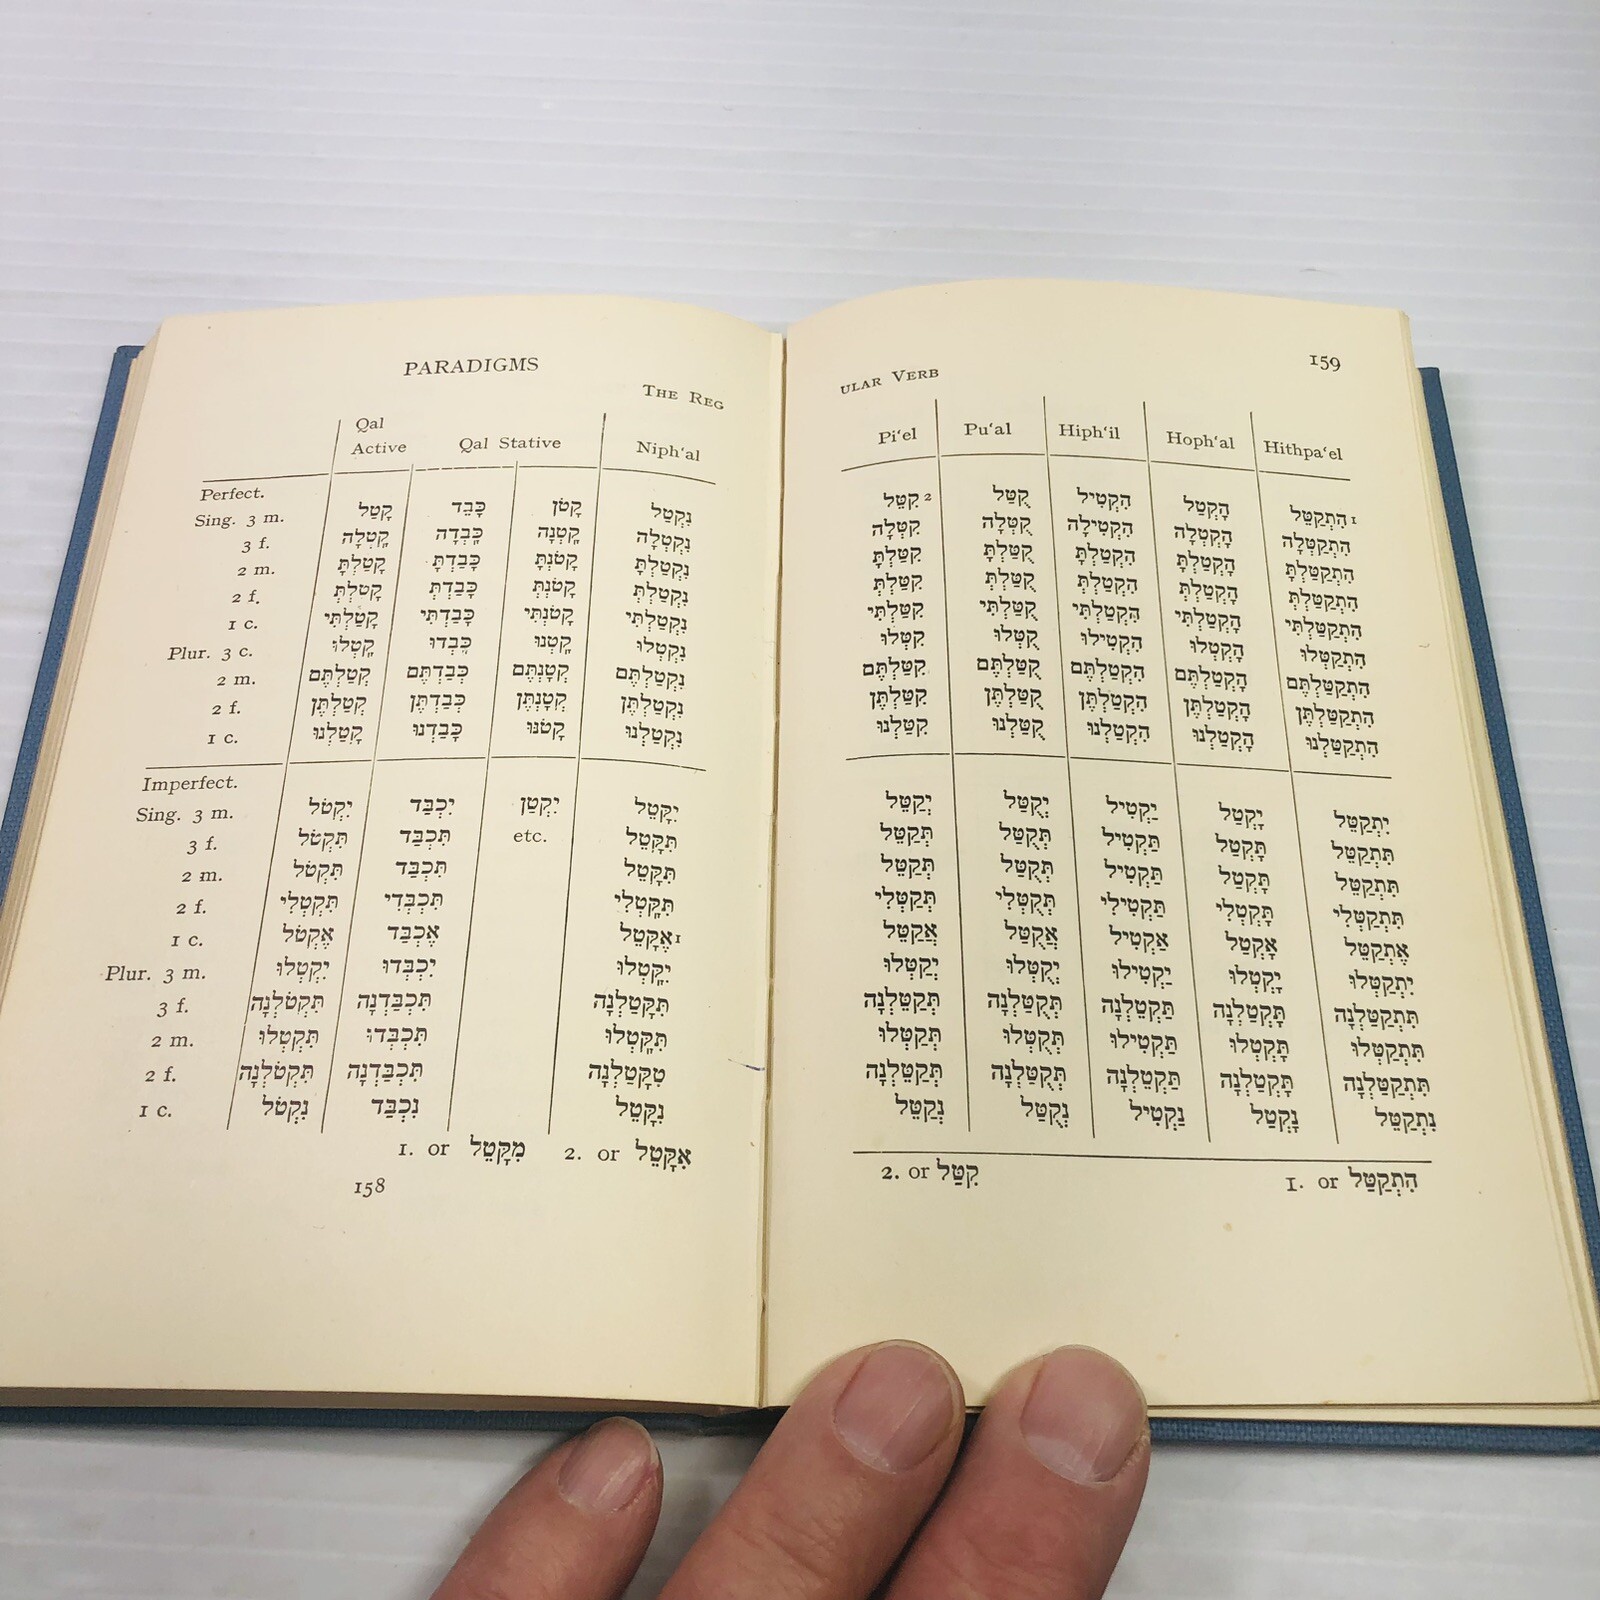 PARADIGMS
THE REG
Qal Active Qal Stative Niph‘al
Perfect.
Sing. 3 m. קָטַל כָּבֵד קָטֹן נִקְטַל
3 f. קָֽטְלָה כָּֽבְדָה קָֽטְנָה נִקְטְלָה
2 m. קָטַלְתָּ כָּבַדְתָּ קָטֹנְתָּ נִקְטַלְתָּ
2 f. קָטַלְתְּ כָּבַדְתְּ קָטֹנְתְּ נִקְטַלְתְּ
1 c. קָטַלְתִּי כָּבַדְתִּי קָטֹנְתִּי נִקְטַלְתִּי
Plur. 3 c. קָֽטְלוּ כָּֽבְדוּ קָֽטְנוּ נִקְטְלוּ
2 m. קְטַלְתֶּם כְּבַדְתֶּם קְטָנְתֶּם נִקְטַלְתֶּם
2 f. קְטַלְתֶּן כְּבַדְתֶּן קְטָנְתֶּן נִקְטַלְתֶּן
1 c. קָטַלְנוּ כָּבַדְנוּ קָטֹנּוּ נִקְטַלְנוּ
Imperfect.
Sing. 3 m. יִקְטֹל יִכְבַּד יִקְטַן יִקָּטֵל
3 f. תִּקְטֹל תִּכְבַּד etc. תִּקָּטֵל
2 m. תִּקְטֹל תִּכְבַּד תִּקָּטֵל
2 f. תִּקְטְלִי תִּכְבְּדִי תִּקָּֽטְלִי
1 c. אֶקְטֹל אֶכְבַּד אֶקָּטֵל1
Plur. 3 m. יִקְטְלוּ יִכְבְּדוּ יִקָּֽטְלוּ
3 f. תִּקְטֹלְנָה תִּכְבַּדְנָה תִּקָּטַלְנָה
2 m. תִּקְטְלוּ תִּכְבְּדוּ תִּקָּֽטְלוּ
2 f. תִּקְטֹלְנָה תִּכְבַּדְנָה טִקָּטַלְנָה
1 c. נִקְטֹל נִכְבַּד נִקָּטֵל
1. or מִקָּטֵל 2. or אִקָּטֵל
158
159
ULAR VERB
Pi‘el Pu‘al Hiph‘il Hoph‘al Hithpa‘el
קִטֵּל 2 קֻטַּל הִקְטִיל הָקְטַל הִתְקַטֵּל1
קִטְּלָה קֻטְּלָה הִקְטִילָה הָקְטְלָה הִתְקַטְּלָה
קִטַּלְתָּ קֻטַּלְתָּ הִקְטַלְתָּ הָקְטַלְתָּ הִתְקַטַּלְתָּ
קִטַּלְתְּ קֻטַּלְתְּ הִקְטַלְתְּ הָקְטַלְתְּ הִתְקַטַּלְתְּ
קִטַּלְתִּי קֻטַּלְתִּי הִקְטַלְתִּי הָקְטַלְתִּי הִתְקַטַּלְתִּי
קִטְּלוּ קֻטְּלוּ הִקְטִילוּ הָקְטְלוּ הִתְקַטְּלוּ
קִטַּלְתֶּם קֻטַּלְתֶּם הִקְטַלְתֶּם הָקְטַלְתֶּם הִתְקַטַּלְתֶּם
קִטַּלְתֶּן קֻטַּלְתֶּן הִקְטַלְתֶּן הָקְטַלְתֶּן הִתְקַטַּלְתֶּן
קִטַּלְנוּ קֻטַּלְנוּ הִקְטַלְנוּ הָקְטַלְנוּ הִתְקַטַּלְנוּ
יְקַטֵּל יְקֻטַּל יַקְטִיל יָקְטַל יִתְקַטֵּל
תְּקַטֵּל תְּקֻטַּל תַּקְטִיל תָּקְטַל תִּתְקַטֵּל
תְּקַטֵּל תְּקֻטַּל תַּקְטִיל תָּקְטַל תִּתְקַטֵּל
תְּקַטְּלִי תְּקֻטְּלִי תַּקְטִילִי תָּקְטְלִי תִּתְקַטְּלִי
אֲקַטֵּל אֲקֻטַּל אַקְטִיל אָקְטַל אֶתְקַטֵּל
יְקַטְּלוּ יְקֻטְּלוּ יַקְטִילוּ יָקְטְלוּ יִתְקַטְּלוּ
תְּקַטֵּלְנָה תְּקֻטַּלְנָה תַּקְטֵלְנָה תָּקְטַלְנָה תִּתְקַטֵּלְנָה
תְּקַטְּלוּ תְּקֻטְּלוּ תַּקְטִילוּ תָּקְטְלוּ תִּתְקַטְּלוּ
תְּקַטֵּלְנָה תְּקֻטַּלְנָה תַּקְטֵלְנָה תָּקְטַלְנָה תִּתְקַטֵּלְנָה
נְקַטֵּל נְקֻטַּל נַקְטִיל נָקְטַל נִתְקַטֵּל
2. or קִטַּל 1. or הִתְקַטַּל